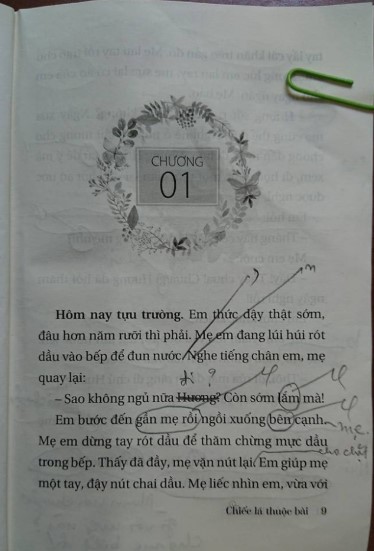 CHƯƠNG
01
Hôm nay tựu trường. Em thức dậy thật sớm,
đâu hơn năm rưỡi thì phải. Mẹ em đang lúi húi rót
dầu vào bếp để đun nước. Nghe tiếng chân em, mẹ
quay lại:
đi ?
– Sao không ngủ nữa Hương? Còn sớm lắm mà!
Em bước đến gần mẹ rồi ngồi xuống bên cạnh.
mẹ.
Mẹ em dừng tay rót dầu để thăm chừng mực dầu
cho chặt
trong bếp. Thấy đã đầy, mẹ vặn nút lại. Em giúp mẹ
một tay, đậy nút chai dầu. Mẹ liếc nhìn em, vừa với
Chiếc lá thuộc bài 9